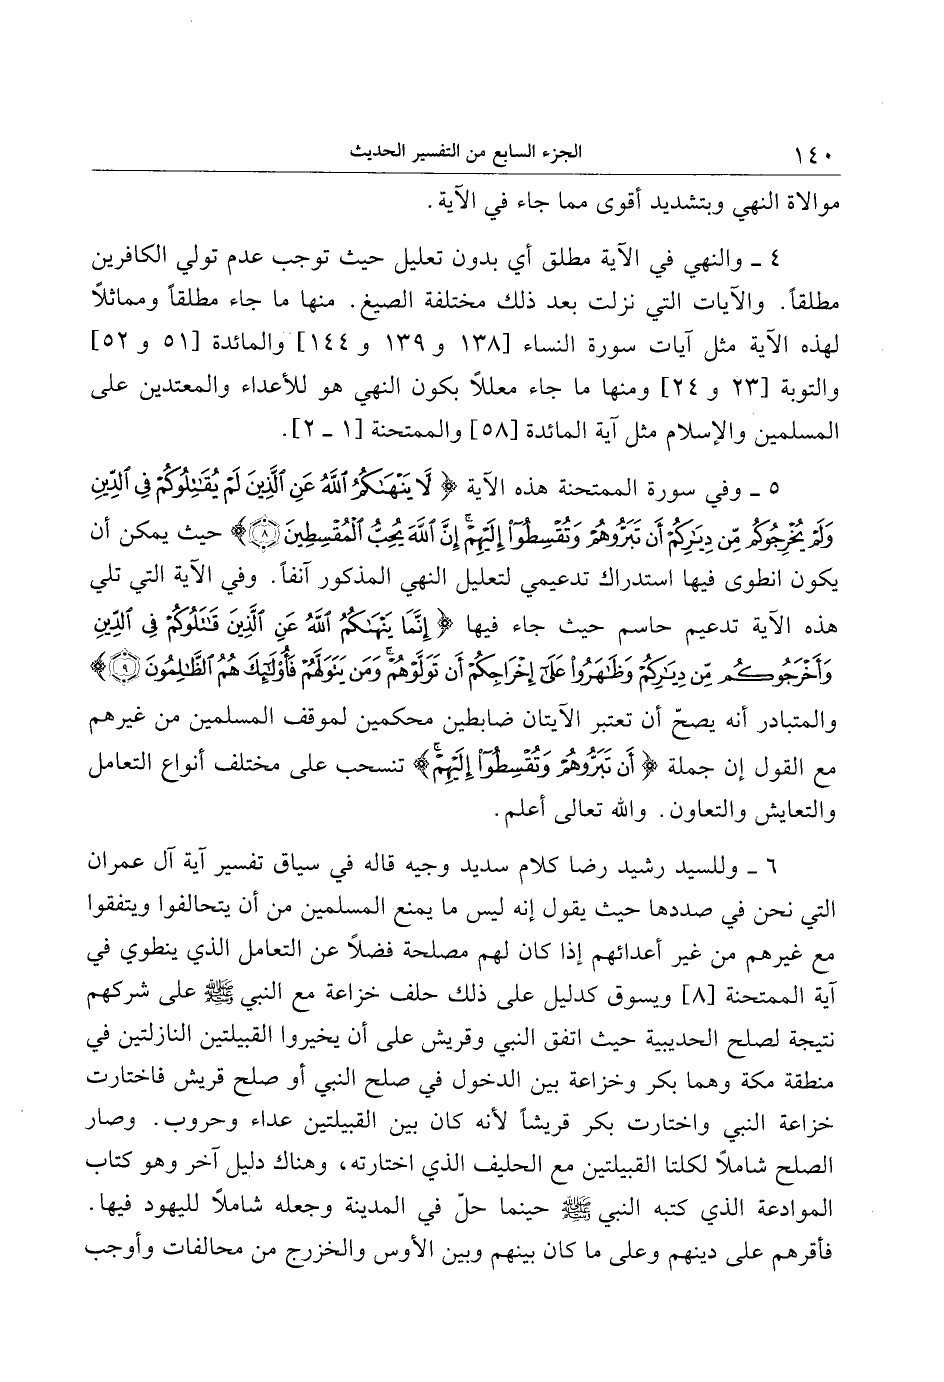 ١٤٠ الجزء السابع من التفسير الحديث
موالاة النهي وبتشديد أقوى مما جاء في الآية.
٤ ـ والنهي في الآية مطلق أي بدون تعليل حيث توجب عدم تولي الكافرين
مطلقاً. والآيات التي نزلت بعد ذلك مختلفة الصيغ. منها ما جاء مطلقاً ومماثلاً
لهذه الآية مثل آيات سورة النساء [١٣٨ و ١٣٩ و ١٤٤] والمائدة [٥١ و ٥٢]
والتوبة [٢٣ و ٢٤] ومنها ما جاء معللاً بكون النهي هو للأعداء والمعتدين على
المسلمين والإسلام مثل آية المائدة [٥٨] والممتحنة [١ ـ ٢].
٥ ـ وفي سورة الممتحنة هذه الآية ﴿ لَّا يَنْهَىٰكُمُ ٱللَّهُ عَنِ ٱلَّذِينَ لَمْ يُقَٰتِلُوكُمْ فِي ٱلدِّينِ
وَلَمْ يُخْرِجُوكُم مِّن دِيَٰرِكُمْ أَن تَبَرُّوهُمْ وَتُقْسِطُوٓا۟ إِلَيْهِمْۚ إِنَّ ٱللَّهَ يُحِبُّ ٱلْمُقْسِطِينَ ﴿٨﴾﴾ حيث يمكن أن
يكون انطوى فيها استدراك تدعيمي لتعليل النهي المذكور آنفاً. وفي الآية التي تلي
هذه الآية تدعيم حاسم حيث جاء فيها ﴿ إِنَّمَا يَنْهَىٰكُمُ ٱللَّهُ عَنِ ٱلَّذِينَ قَٰتَلُوكُمْ فِي ٱلدِّينِ
وَأَخْرَجُوكُم مِّن دِيَٰرِكُمْ وَظَٰهَرُوا۟ عَلَىٰٓ إِخْرَاجِكُمْ أَن تَوَلَّوْهُمْۚ وَمَن يَتَوَلَّهُمْ فَأُو۟لَٰٓئِكَ هُمُ ٱلظَّٰلِمُونَ ﴿٩﴾﴾
والمتبادر أنه يصحّ أن تعتبر الآيتان ضابطين محكمين لموقف المسلمين من غيرهم
مع القول إن جملة ﴿ أَن تَبَرُّوهُمْ وَتُقْسِطُوٓا۟ إِلَيْهِمْۚ ﴾ تنسحب على مختلف أنواع التعامل
والتعايش والتعاون. والله تعالى أعلم.
٦ ـ وللسيد رشيد رضا كلام سديد وجيه قاله في سياق تفسير آية آل عمران
التي نحن في صددها حيث يقول إنه ليس ما يمنع المسلمين من أن يتحالفوا ويتفقوا
مع غيرهم من غير أعدائهم إذا كان لهم مصلحة فضلاً عن التعامل الذي ينطوي في
آية الممتحنة [٨] ويسوق كدليل على ذلك حلف خزاعة مع النبي ﷺ على شركهم
نتيجة لصلح الحديبية حيث اتفق النبي وقريش على أن يخيروا القبيلتين النازلتين في
منطقة مكة وهما بكر وخزاعة بين الدخول في صلح النبي أو صلح قريش فاختارت
خزاعة النبي واختارت بكر قريشاً لأنه كان بين القبيلتين عداء وحروب. وصار
الصلح شاملاً لكلتا القبيلتين مع الحليف الذي اختارته، وهناك دليل آخر وهو كتاب
الموادعة الذي كتبه النبي ﷺ حينما حلّ في المدينة وجعله شاملاً لليهود فيها.
فأقرهم على دينهم وعلى ما كان بينهم وبين الأوس والخزرج من محالفات وأوجب